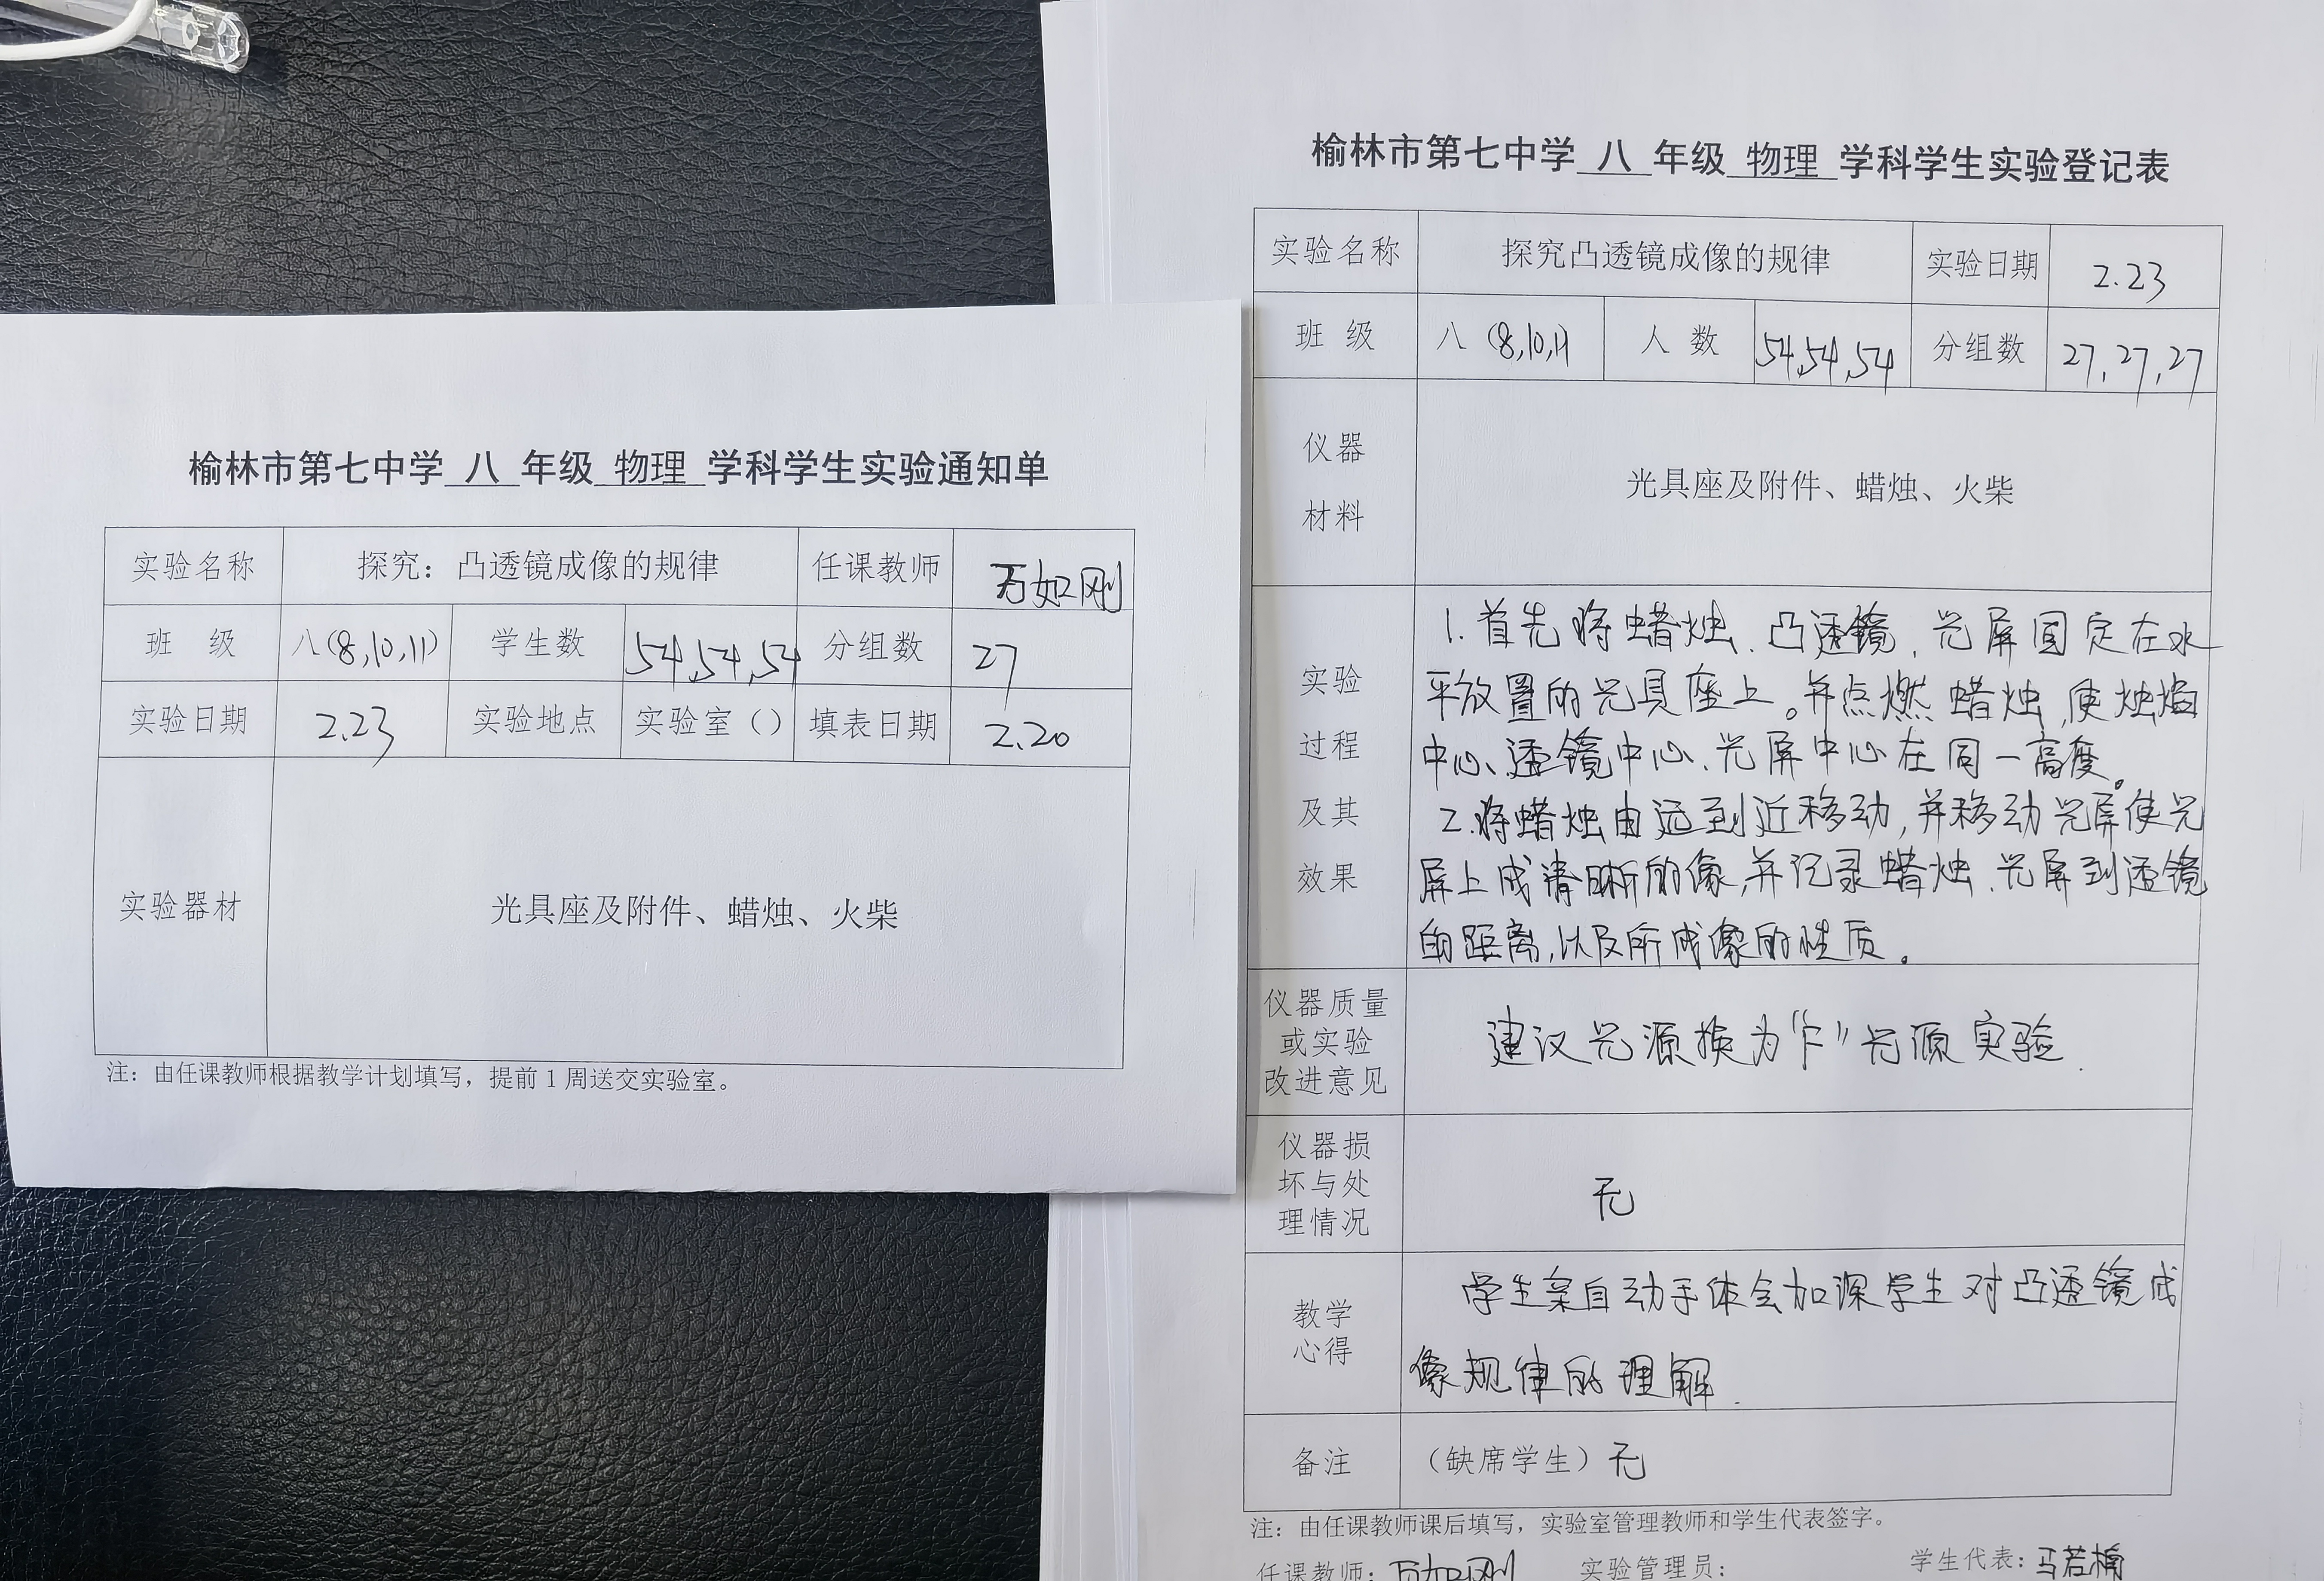 榆林市第七中学 八 年级 物理 学科学生实验通知单
实验名称 探究：凸透镜成像的规律 任课教师 万如刚
班 级 八(8,10,11) 学生数 54,54,54 分组数 27
实验日期 2.23 实验地点 实验室（） 填表日期 2.20
实验器材 光具座及附件、蜡烛、火柴
注：由任课教师根据教学计划填写，提前1周送交实验室。
榆林市第七中学 八 年级 物理 学科学生实验登记表
实验名称 探究凸透镜成像的规律 实验日期 2.23
班 级 八(8,10,11) 人 数 54,54,54 分组数 27,27,27
仪器
材料
光具座及附件、蜡烛、火柴
实验
过程
及其
效果
1.首先将蜡烛、凸透镜、光屏固定在水
平放置的光具座上。并点燃蜡烛,使烛焰
中心、透镜中心、光屏中心在同一高度。
2.将蜡烛由远到近移动,并移动光屏使光
屏上成清晰的像,并记录蜡烛、光屏到透镜
的距离,以及所成像的性质。
仪器质量
或实验
改进意见
建议光源换为“F”光源实验.
仪器损
坏与处
理情况
无
教学
心得
学生亲自动手体会加深学生对凸透镜成
像规律的理解.
备注 （缺席学生）无
注：由任课教师课后填写，实验室管理教师和学生代表签字。
任课教师：万如刚 实验管理员： 学生代表：马若楠